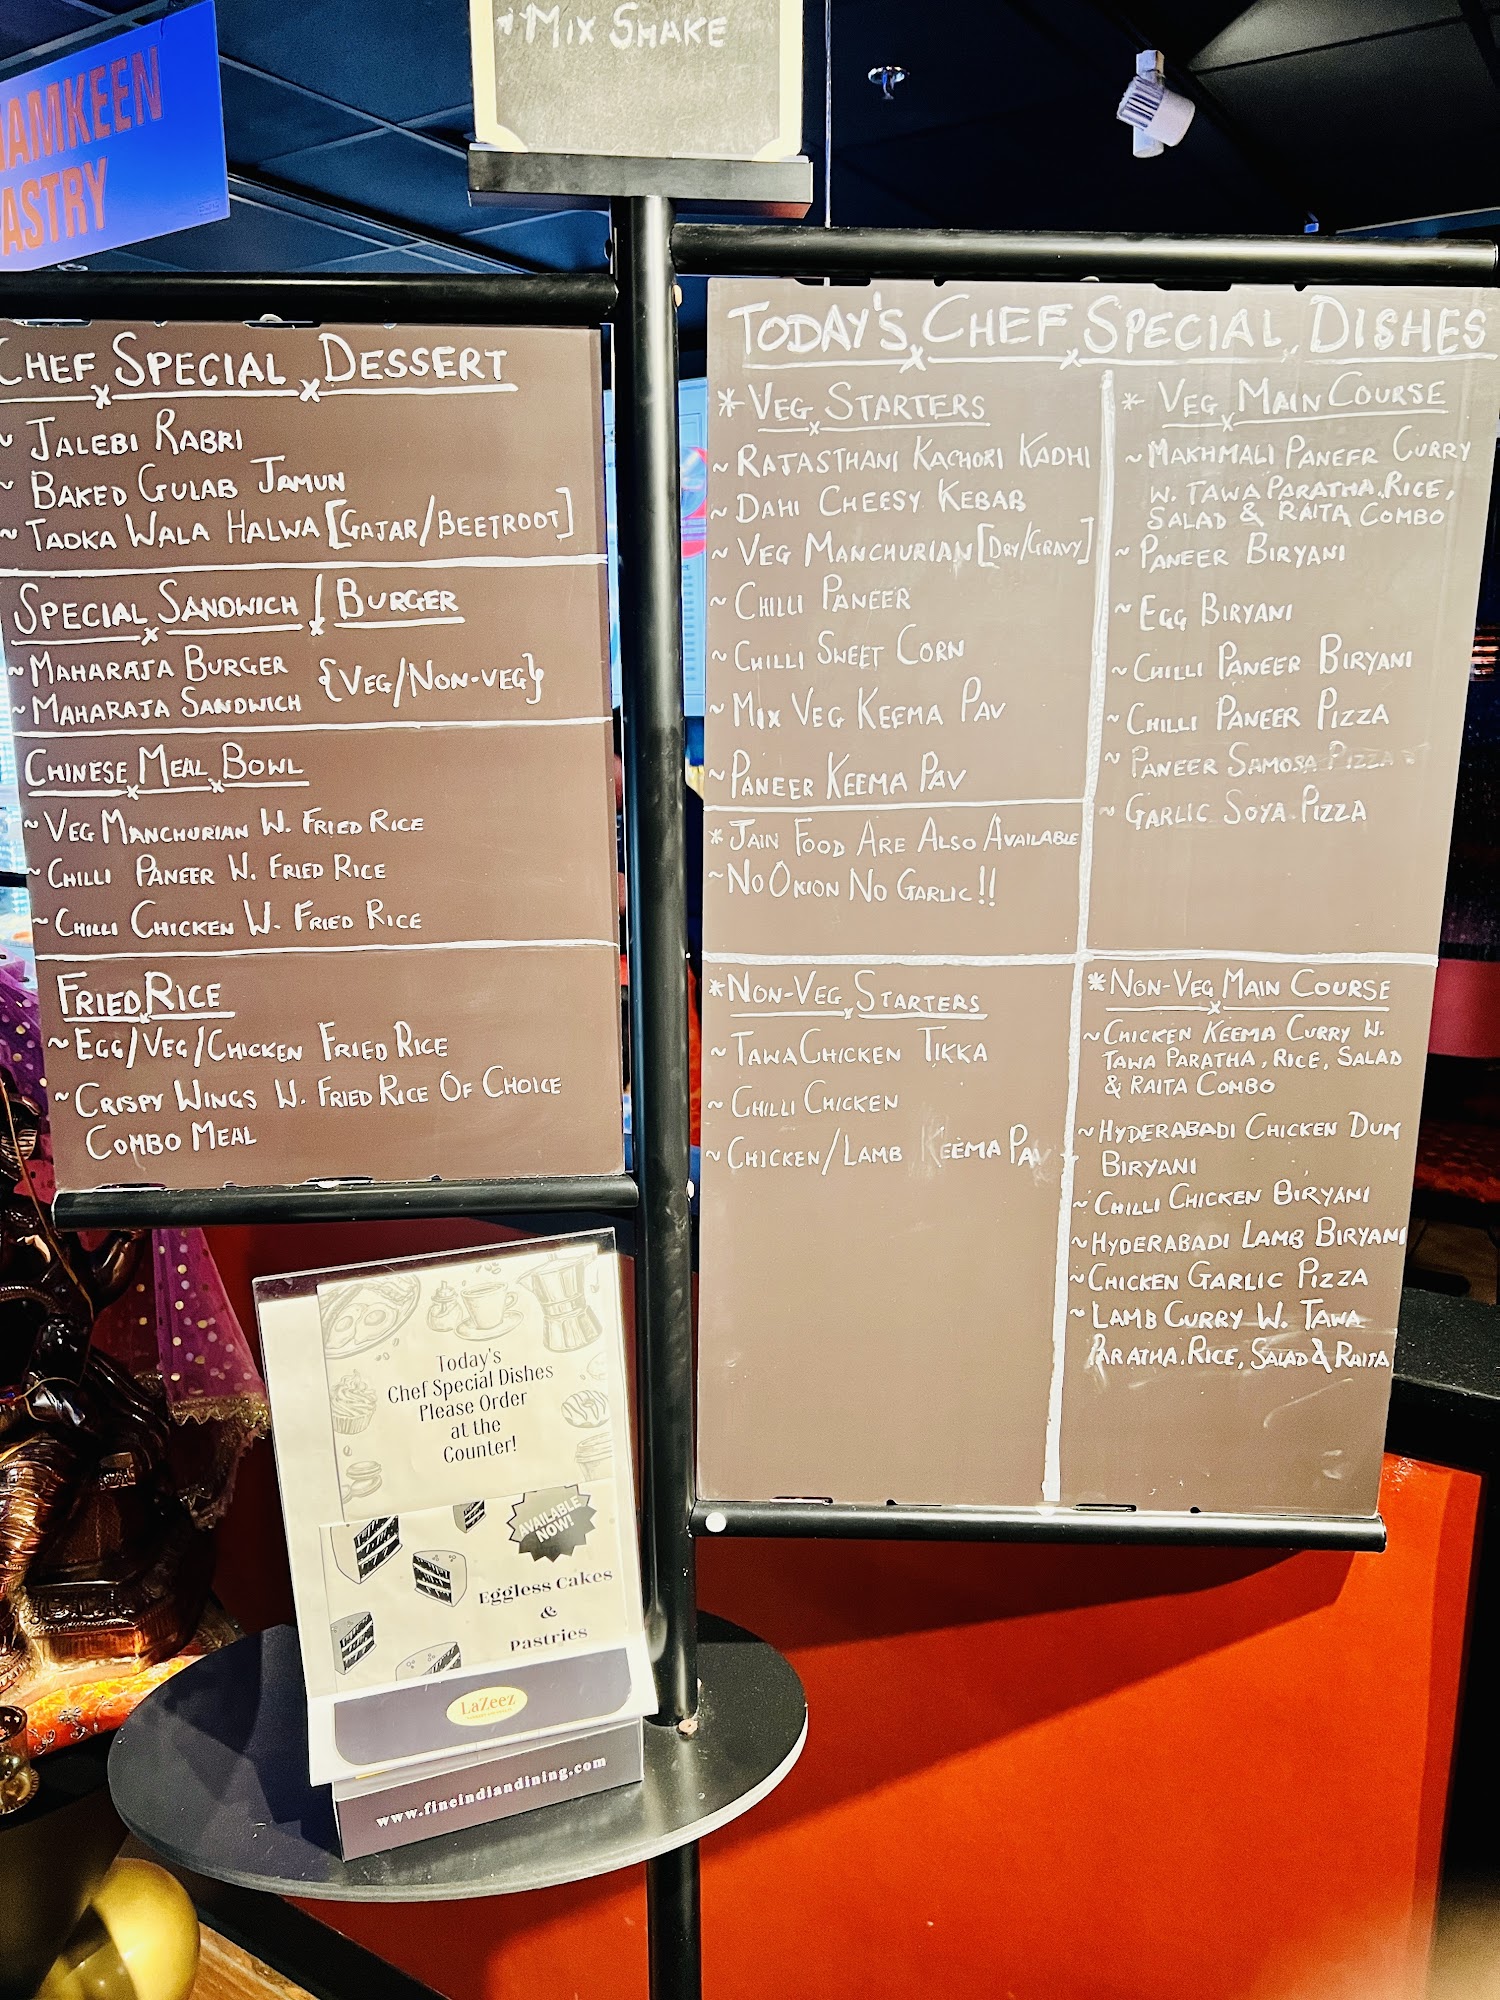 ~ MIX SHAKE
NAMKEEN
PASTRY
CHEF SPECIAL DESSERT
~ JALEBI RABRI
~ BAKED GULAB JAMUN
~ TADKA WALA HALWA [GAJAR/BEETROOT]
SPECIAL SANDWICH / BURGER
~ MAHARAJA BURGER
~ MAHARAJA SANDWICH {VEG/NON-VEG}
CHINESE MEAL BOWL
~ VEG MANCHURIAN W. FRIED RICE
~ CHILLI PANEER W. FRIED RICE
~ CHILLI CHICKEN W. FRIED RICE
FRIED RICE
~ EGG/VEG/CHICKEN FRIED RICE
~ CRISPY WINGS W. FRIED RICE OF CHOICE
COMBO MEAL
TODAY'S CHEF SPECIAL DISHES
* VEG STARTERS
~ RAJASTHANI KACHORI KADHI
~ DAHI CHEESY KEBAB
~ VEG MANCHURIAN [DRY/GRAVY]
~ CHILLI PANEER
~ CHILLI SWEET CORN
~ MIX VEG KEEMA PAV
~ PANEER KEEMA PAV
* JAIN FOOD ARE ALSO AVAILABLE
~ NO ONION NO GARLIC!!
* VEG MAIN COURSE
~ MAKHMALI PANEER CURRY
W. TAWA PARATHA, RICE,
SALAD & RAITA COMBO
~ PANEER BIRYANI
~ EGG BIRYANI
~ CHILLI PANEER BIRYANI
~ CHILLI PANEER PIZZA
~ PANEER SAMOSA PIZZA
~ GARLIC SOYA PIZZA
* NON-VEG STARTERS
~ TAWA CHICKEN TIKKA
~ CHILLI CHICKEN
~ CHICKEN/LAMB KEEMA PAV
* NON-VEG MAIN COURSE
~ CHICKEN KEEMA CURRY W.
TAWA PARATHA, RICE, SALAD
& RAITA COMBO
~ HYDERABADI CHICKEN DUM
BIRYANI
~ CHILLI CHICKEN BIRYANI
~ HYDERABADI LAMB BIRYANI
~ CHICKEN GARLIC PIZZA
~ LAMB CURRY W. TAWA
PARATHA, RICE, SALAD & RAITA
Today's
Chef Special Dishes
Please Order
at the
Counter!
AVAILABLE
NOW!
Eggless Cakes
&
Pastries
LaZeez
www.fineindiandining.com